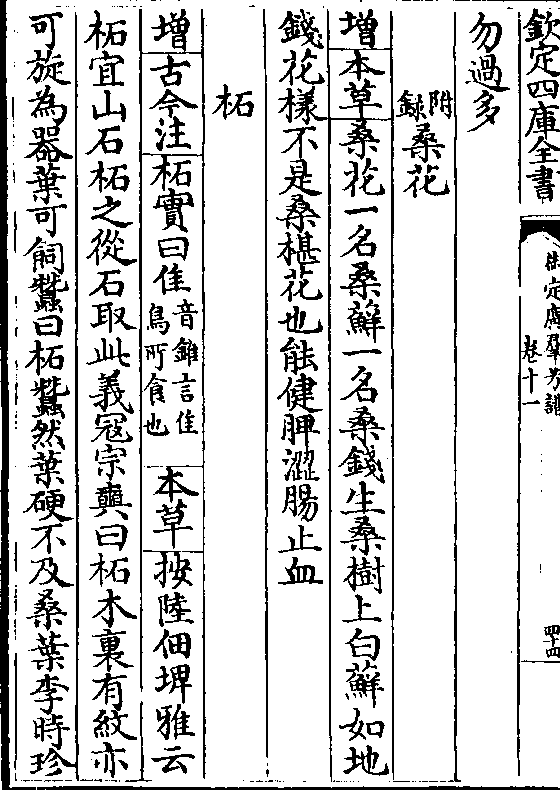 欽定四庫全書
御定廣羣芳譜
卷十一
四十四
勿過多
附錄桑花
增本草桑花一名桑蘚一名桑錢生桑樹上白蘚如地
錢花樣不是桑椹花也能健脾澀腸止血
柘
增古今注柘實曰隹音錐言隹鳥所食也本草按陸佃埤雅云
柘宜山石柘之從石取此義寇宗奭曰柘木裏有紋亦
可旋為器葉可飼蠶曰柘蠶然葉硬不及桑葉李時珍